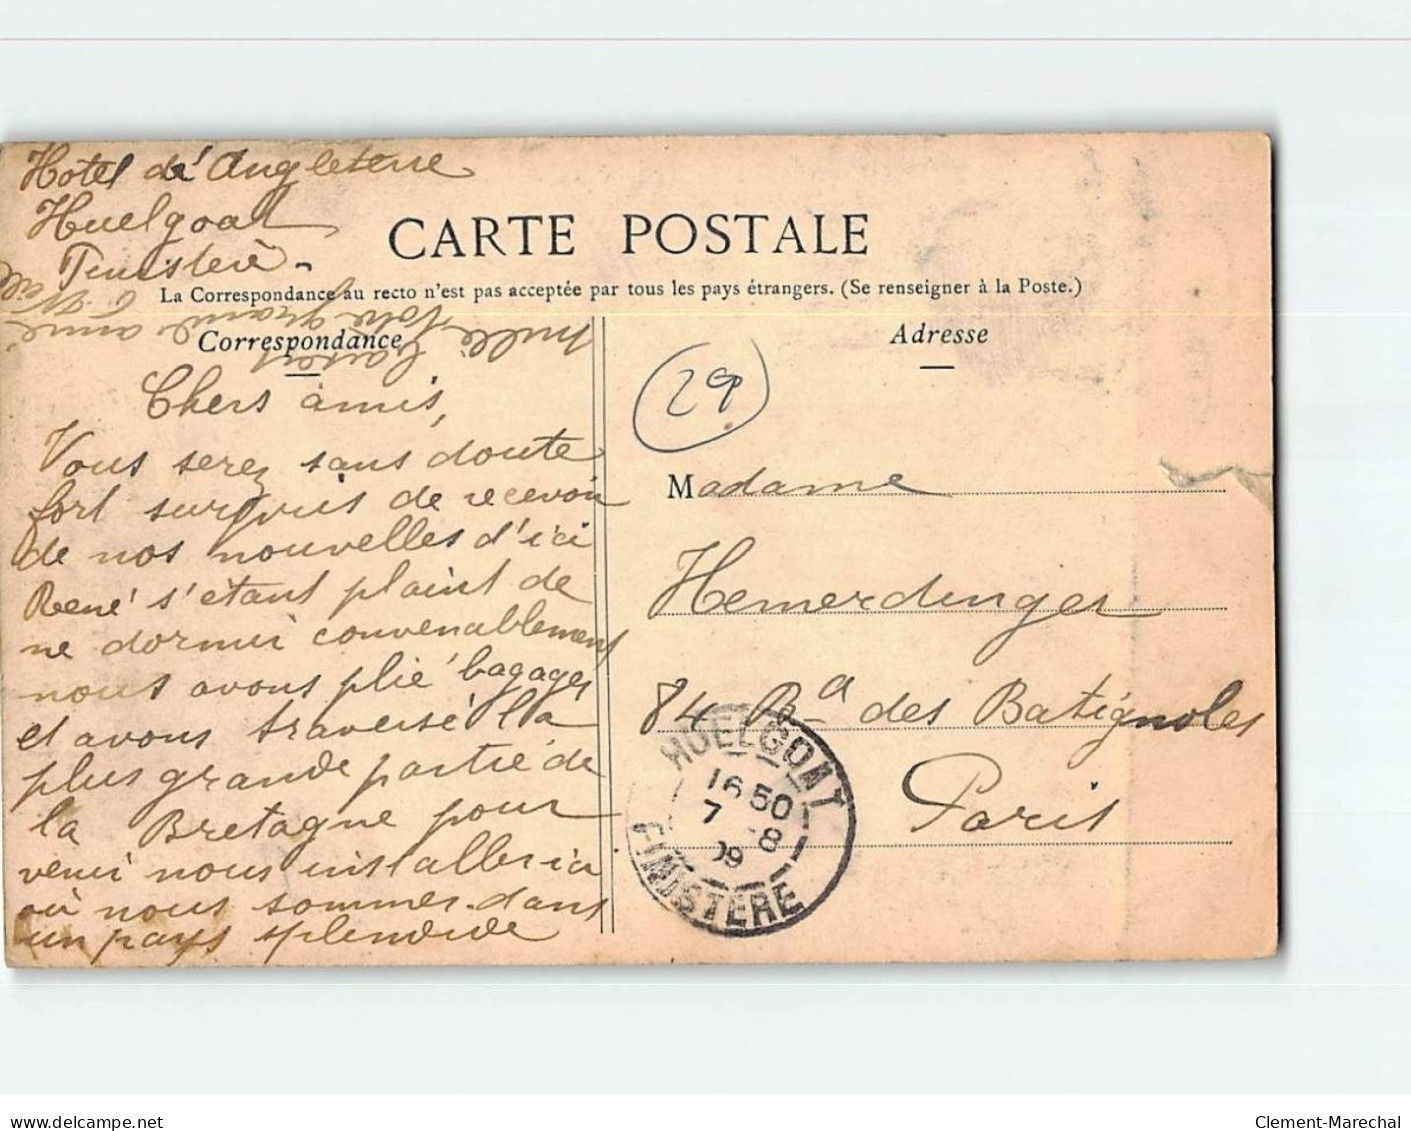 Hotel de d'Angleterre
Huelgoat
Finistère
CARTE POSTALE
La Correspondance au recto n'est pas acceptée par tous les pays étrangers. (Se renseigner à la Poste.)
Correspondance
mille baisers
Votre grande amie
Chers amis,
Vous serez sans doute
fort surpris de recevoir
de nos nouvelles d'ici
René s'étant plaint de
ne dormir convenablement
nous avons plié bagages
et avons traversé la
plus grande partie de
la Bretagne pour
venir nous installer ici
où nous sommes dans
un pays splendide
Adresse
29
Madame
Hemerdinger
84 Bd des Batignoles
Paris
HUELGOAT
16 50
7 -8
09
FINISTERE
www.delcampe.net
Clement-Marechal